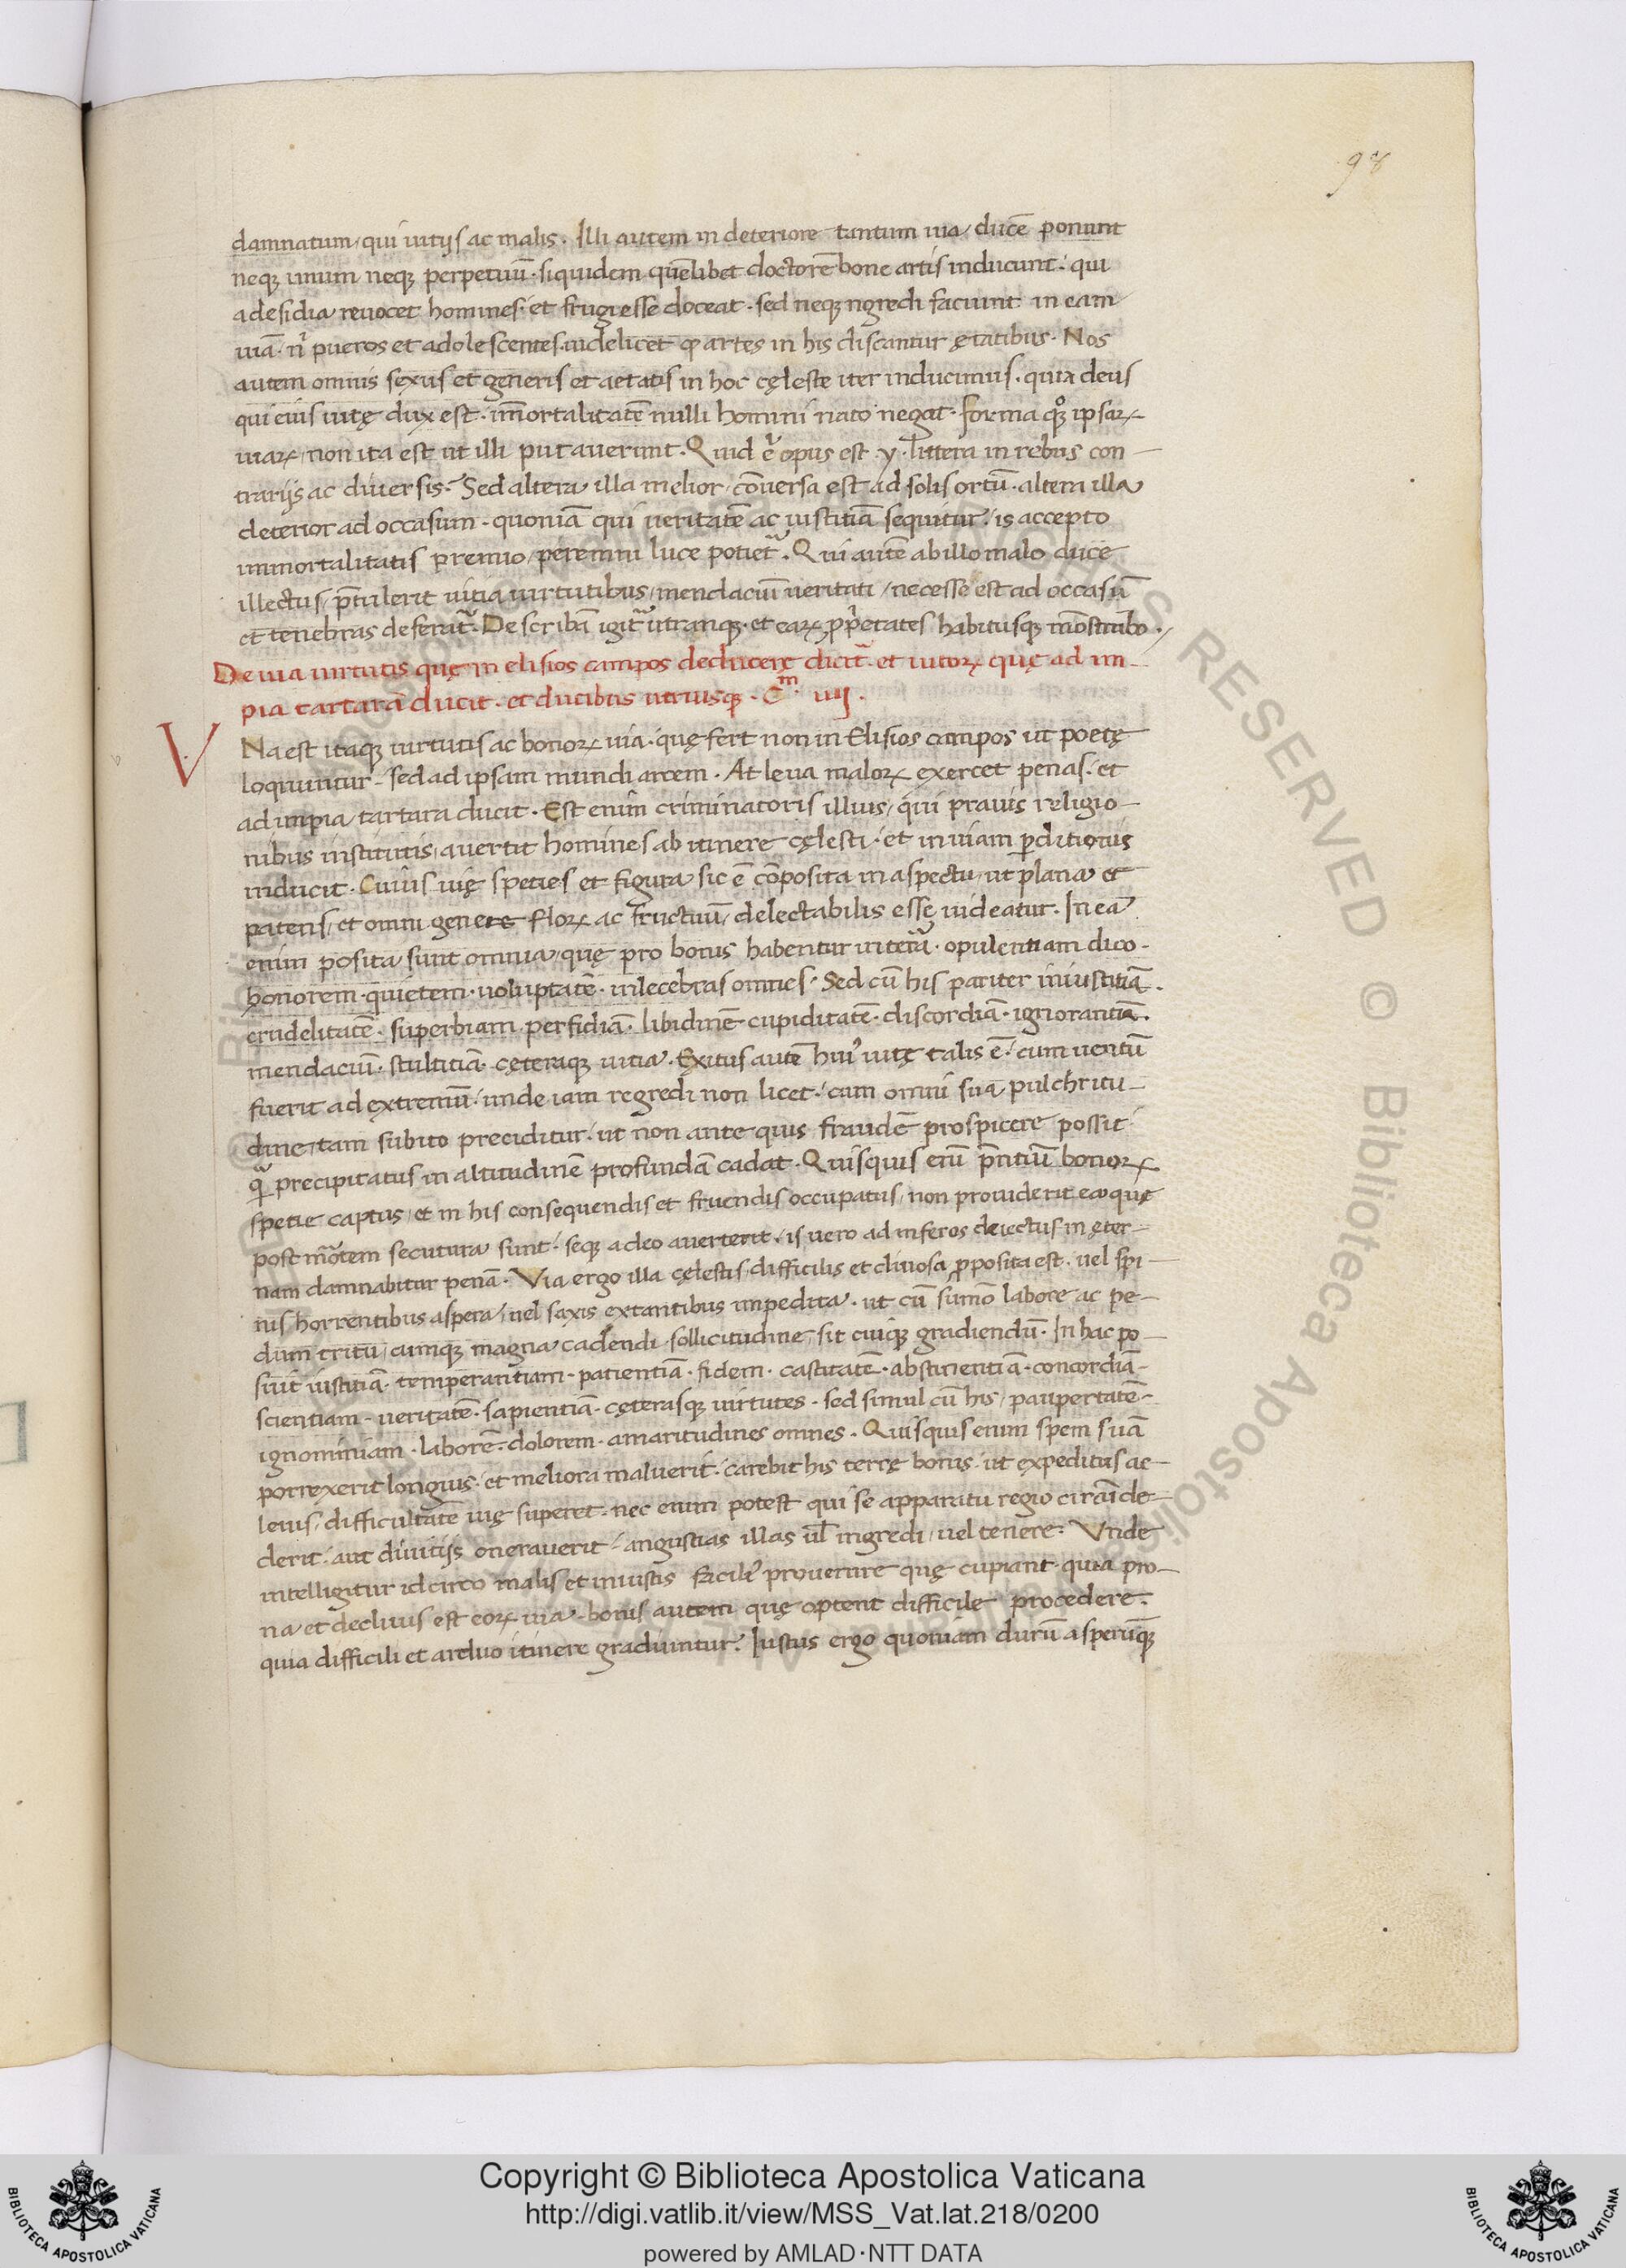 98
damnatum, qui uitijs ac malis. Illi autem in deteriore tantum uia, ducē ponunt
neq; unum neq; perpetuū. siquidem quēlibet doctorē bone artis inducunt. qui
a desidia reuocet homines. et frugi esse doceat. sed neq; ingredi faciunt in eam
uiā. nͥ pueros et adolescentes. uidelicet ꝙ artes in his discantur ętatibus. Nos
autem omnis sexus et generis et aetatis in hoc cęleste iter inducimus. quia deus
qui eius uitę dux est. īmortalitatē nulli homini nato negat. forma qͦꝫ ipsaꝝ
uiaꝝ, non ita est ut illi putauerunt. Quid .n. opus est .y. littera in rebus con-
trarijs ac diuersis. Sed altera illa melior, cōuersa est ad solis ortū. altera illa
deterior ad occasum. quoniā qui ueritatē ac iustitiā sequitur. is accepto
immortalitatis premio, peremni luce potiet᷑. Qui autē ab illo malo duce
illectus, p̄tulerit uitia uirtutibus, mendaciū ueritati, necesse est ad occasū
et tenebras deferat᷑. Describā igit᷑ utranq;. et eaꝝ ꝓp̄etates habitusq; mōstrabo.
De uia uirtutis quę in elisios campos deducere dicit᷑. et uitoꝝ quę ad im-
pia tartara ducit. et ducibus utriusq;. Cᵐ. iiij.
VNa est itaq; uirtutis ac bonoꝝ uia. quę fert non in Elisios campos ut poetę
loquuntur. sed ad ipsam mundi arcem. At leua maloꝝ exercet penas. et
ad impia tartara ducit. Est enim criminatoris illius, qui prauis religio-
nibus institutis, auertit homines ab itinere cęlesti. et in uiam ꝑditionis
inducit. Cuius uię species et figura sic ē cōposita in aspectu, ut plana et
patens, et omni genere floꝝ ac fructuū, delectabilis esse uideatur. In ea
enim posita sunt omnia, quę pro bonis habentur in terra. opulentiam dico.
honorem. quietem. uoluptatē. inlecebras omnes. Sed cū his pariter iniustitiā.
crudelitatē. superbiam. perfidiā. libidinē. cupiditatē. discordiā. ignorantiā.
mendaciū. stultitiā. cęteraq; uitia. Exitus autē huiꝰ uitę talis ē. cum uentū
fuerit ad extremū. unde iam regredi non licet. cum omni sua pulchritu-
dine, tam subito preciditur. ut non ante quis fraudē prospicere possit.
qͣ precipitatus in altitudinē profundā cadat. Quisquis enī p̄ntiū bonoꝝ
specie captus, et in his consequendis et fruendis occupatus, non prouiderit ea quę
post mōrtem secutura sunt. seq; a deo auerterit. is uero ad inferos deiectus in ęter-
nam damnabitur penā. Via ergo illa cęlestis, difficilis et cliuosa ꝓposita est. uel spi-
nis horrentibus aspera, uel saxis extantibus impedita. ut cū sūmo labore ac pe-
dum tritu, cumq; magna cadendi sollicitudine, sit cuiq; gradiendū. In hac po-
suit iustitiā. temperantiam. patientiā. fidem. castitatē. abstinentiā. concordiā.
scientiam. ueritatē. sapientiā. cęterasq; uirtutes. sed simul cū his, paupertatē.
ignominiam. laborē. dolorem. amaritudines omnes. Quisquis enim spem suā
porrexerit longius. et meliora maluerit. carebit his terrę bonis. ut expeditus ac
leuis, difficultatē uię superet. nec enim potest qui se apparatu regio circūde-
derit. aut diuitijs onerauerit. angustias illas ul̄ ingredi, uel tenere. Vnde
intelligitur idcirco malis et iniustis faciliꝰ prouenire quę cupiant. quia pro-
na et decliuis est eoꝝ uia. bonis autem quę optent difficile procedere.
quia difficili et arduo itinere gradiuntur. Iustus ergo quoniam durū asperūq;
RESERVED © Biblioteca Apostolica
Copyright © Biblioteca Apostolica Vaticana
http://digi.vatlib.it/view/MSS_Vat.lat.218/0200
powered by AMLAD·NTT DATA
BIBLIOTECA APOSTOLICA VATICANA
BIBLIOTECA APOSTOLICA VATICANA